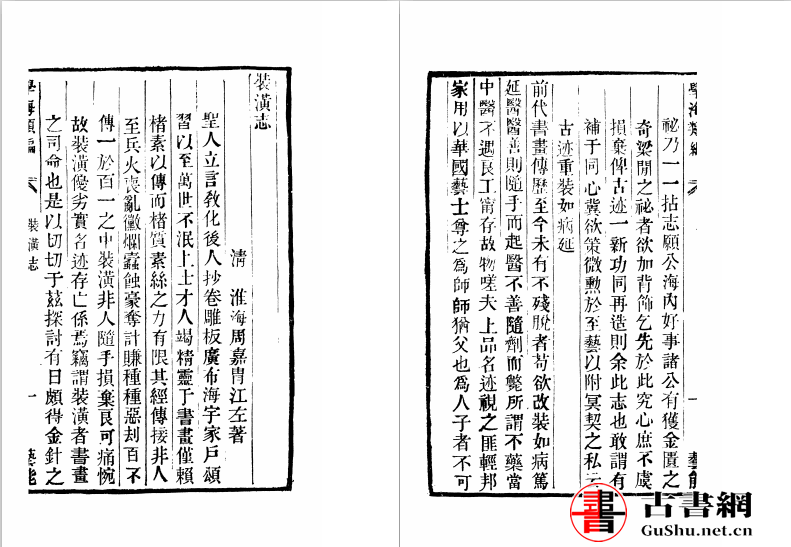 裝潢志
清 淮海周嘉胄江左著
聖人立言敎化後人抄卷雕板廣布海宇家戶頌
習以至萬世不泯上士才人竭精靈于書畫僅賴
楮素以傳而楮質素絲之力有限其經傳接非人
至兵火喪亂黴爛蠧蝕豪奪計賺種種惡刼百不
傳一於百一之中裝潢非人隨手損棄良可痛惋
故裝潢優劣實名迹存亡係焉竊謂裝潢者書畫
之司命也是以切切于茲探討有日頗得金針之
學海類編 裝潢志 一 藝能
學海類編 一 藝能
祕乃一一拈志願公海內好事諸公有獲金匱之
奇梁閒之祕者欲加背飾乞先於此究心庶不虞
損棄俾古迹一新功同再造則余此志也敢謂有
補于同心冀欲策微勲於至藝以附冥契之私云
古迹重裝如病延
前代書畫傳歷至今未有不殘脫者苟欲改裝如病篤
延醫醫善則隨手而起醫不善隨劑而斃所謂不藥當
中醫不遇良工甯存故物嗟夫上品名迹視之匪輕邦
家用以華國藝士尊之爲師師猶父也爲人子者不可
書 古書網
GuShu.net.cn